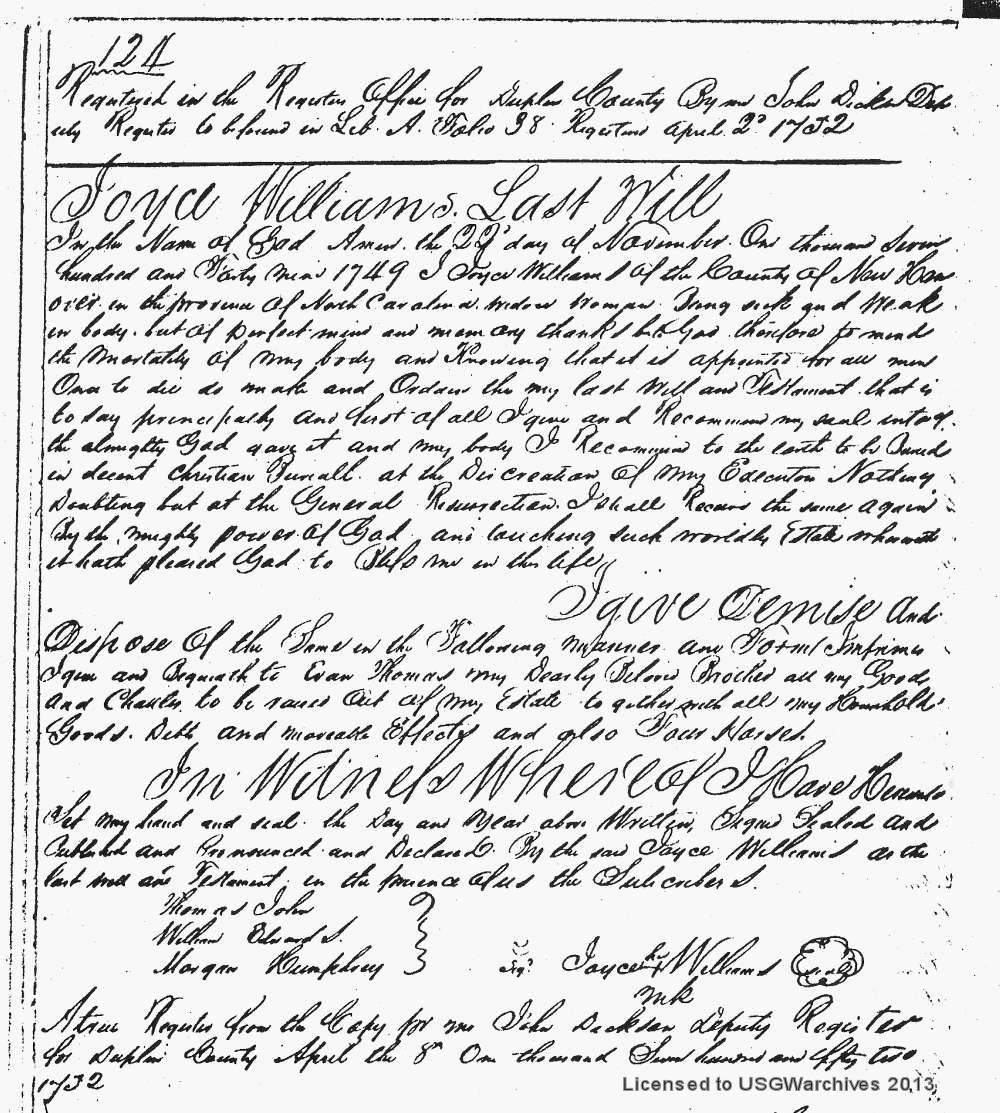 124
Registered in the Registers Office for Duplin County By me John Dickson Dep
uty Register to be found in Lib. A. Folio 38 Registered April 2d 1752
Joyce Williams. Last Will
In the Name of God Amen. the 22d day of November. One thousand Seven
hundred and Forty nine 1749 I Joyce Williams of the County of New Han
over in the province of North Carolina. widow woman. Being sick and Weak
in body. but of perfect mind and memory thanks be to God. therefore to mind
the Mortality of my body and Knowing that it is appointed for all men
Once to die do make and Ordain this my last Will and Testament. that is
to say principally and first of all I give and Recommend my soul into of
the almighty God gave it and my body I Recommend to the earth to be Buried
in decent Christian Buriall. at the Discreation of my Executors Nothing
Doubting but at the General Resurrection. I shall Receive the same again
By the mighty power of God and touching such worldly Estate wherewith
it hath pleased God to Bless me in this life,
I give Demise And
Dispose of the Same in the Following manner and Form/ Imprimis
I give and Bequeath to Evan Thomas my Dearly Beloved Brother all my Goods
and Chattles to be raised Out of my Estate together with all my Household
Goods. Debts and moveable Effects and also Four Horses.
In Witness Whereof I Have Hereunto
Set my hand and seal. the Day and Year above Written, Signed Sealed and
Published and Pronounced and Declared. By the said Joyce Williams as the
last will and Testament. in the presence of us the Subscribers.
Thomas John
William Edwards.
Morgan Humphrey
Joyce her X Williams seal
mk
A true Register from the Copy per me John Dickson Deputy Register
for Duplin County April the 8th One thousand Seven hundred and fifty two
1752
Licensed to USGWarchives 2013